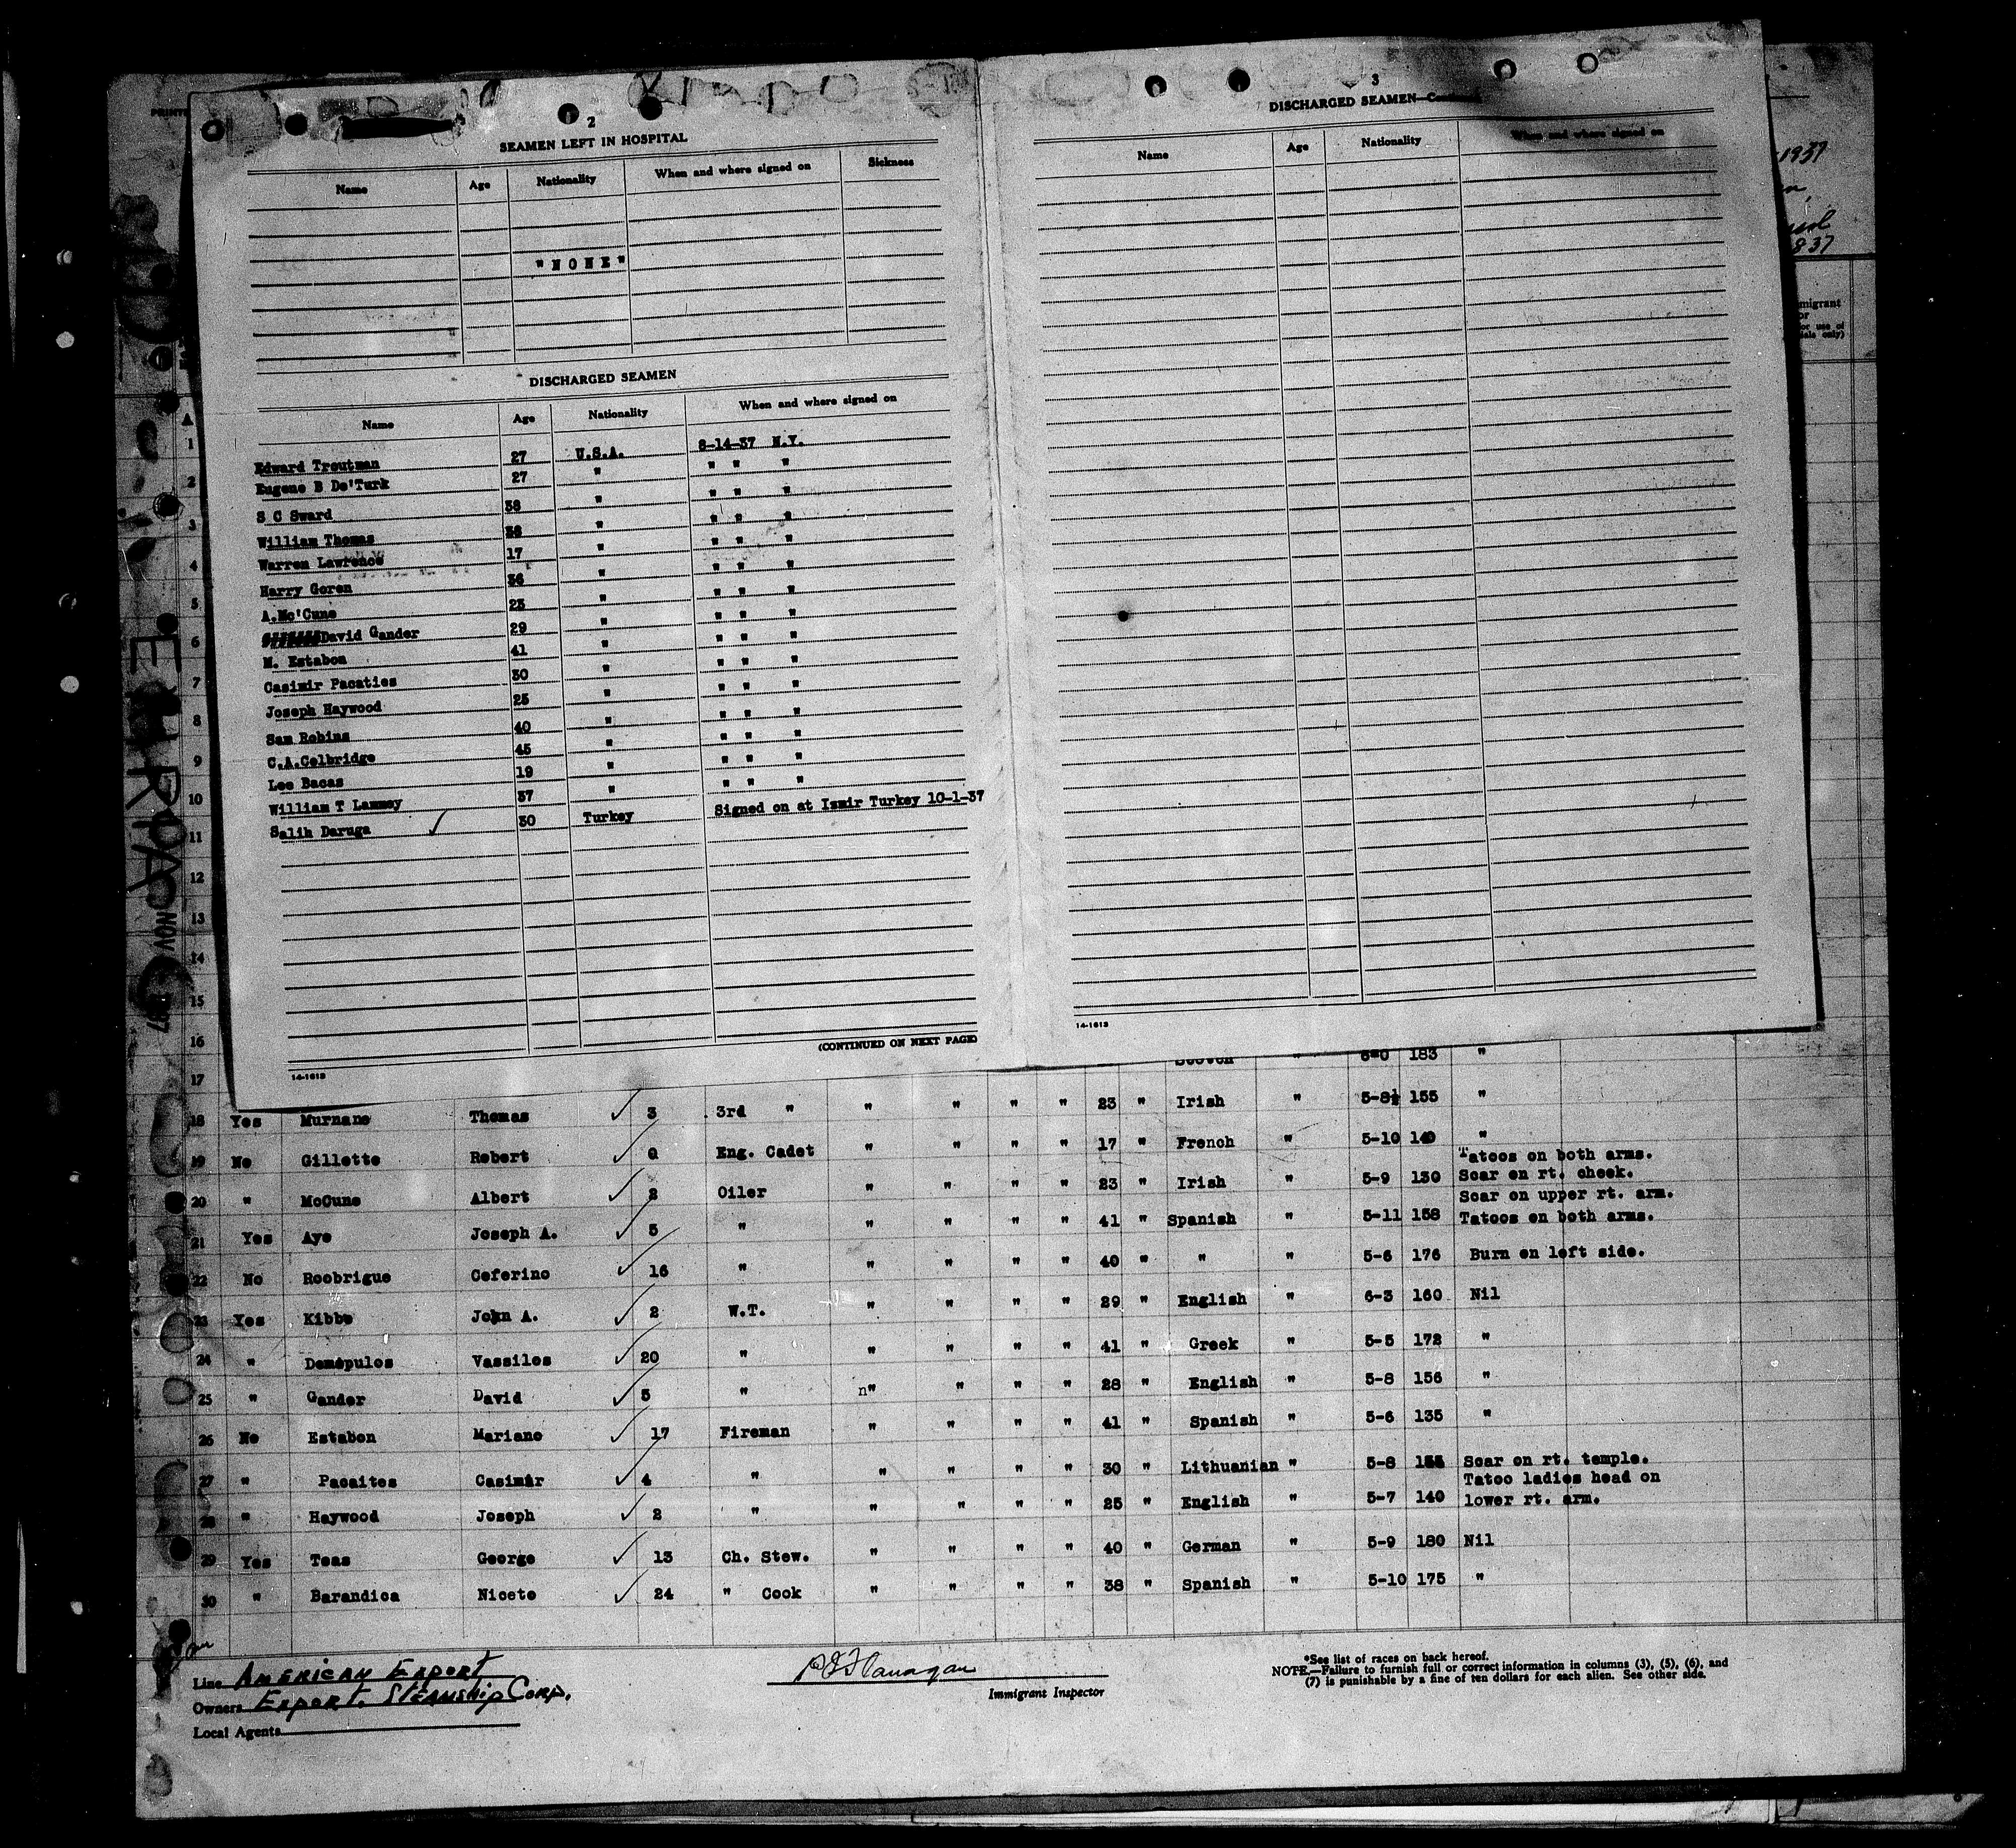 2
SEAMEN LEFT IN HOSPITAL
Name Age Nationality When and where signed on Sickness
"NONE"
DISCHARGED SEAMEN
Name Age Nationality When and where signed on
Edward Troutman 27 U.S.A. 8-14-37 N.Y.
Eugene B De'Turk 27 " " " "
S C Sward 38 " " " "
William Thomas 38 " " " "
Warren Lawrence 17 " " " "
Harry Goren 36 " " " "
A.Mc'Cune 23 " " " "
David Gander 29 " " " "
M. Estabon 41 " " " "
Casimir Pacaties 30 " " " "
Joseph Haywood 25 " " " "
Sam Robins 40 " " " "
C.A.Celbridge 45 " " " "
Lee Bacas 19 " " " "
William T Lammey 37 " " " "
Salih Daruga ✓ 30 Turkey Signed on at Izmir Turkey 10-1-37
(CONTINUED ON NEXT PAGE)
14-1613
3
DISCHARGED SEAMEN
Name Age Nationality When and where signed on
14-1613
1937
837
migrant
or
or use of
ials only)
1
2
3
4
5
6
7
8
9
10
11
12
13
14
15
16
17
EUROPA
NOV
183 "
18 Yes Murnane Thomas ✓ 3 3rd " " " " " 23 " Irish " 5-8½ 155 "
19 No Gillette Robert ✓ 0 Eng. Cadet " " " " 17 " French " 5-10 140 "
20 " McCune Albert ✓ 2 Oiler " " " " 23 " Irish " 5-9 130 Tatoos on both arms.
Scar on rt. cheek.
Scar on upper rt. arm.
21 Yes Aye Joseph A. ✓ 5 " " " " " 41 " Spanish " 5-11 158 Tatoos on both arms.
22 No Roobrigue Ceferino ✓ 16 " " " " " 40 " " " 5-6 176 Burn on left side.
23 Yes Kibbe John A. ✓ 2 W.T. " " " " 29 " English " 6-3 160 Nil
24 " Demopulos Vassilos ✓ 20 " " " " " 41 " Greek " 5-5 172 "
25 " Gander David ✓ 5 " n" " " " 28 " English " 5-8 156 "
26 No Estabon Mariano ✓ 17 Fireman " " " " 41 " Spanish " 5-6 135 "
27 " Pacaites Casimir ✓ 4 " " " " " 30 " Lithuanian " 5-8 Scar on rt. temple.
Tatoo ladies head on
28 " Haywood Joseph ✓ 2 " " " " " 25 " English " 5-7 140 lower rt. arm.
29 Yes Teas George ✓ 13 Ch. Stew. " " " " 40 " German " 5-9 180 Nil
30 " Barandica Niceto ✓ 24 " Cook " " " " 38 " Spanish " 5-10 175 "
Line American Export
Owners Export Steamship Corp.
Local Agents
Flanagan
Immigrant Inspector
*See list of races on back hereof.
NOTE.—Failure to furnish full or correct information in columns (3), (5), (6), and
(7) is punishable by a fine of ten dollars for each alien. See other side.